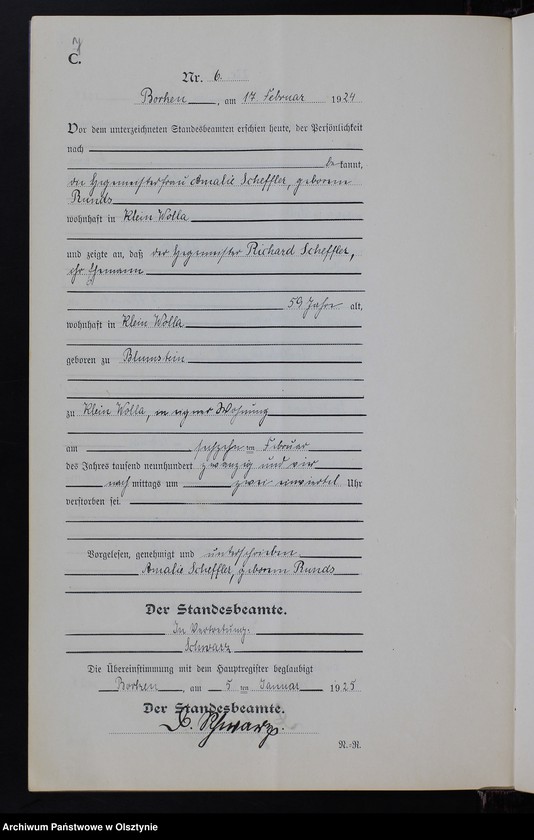 C.
Nr. 6.
Borken, am 17 Februar 1924
Vor dem unterzeichneten Standesbeamten erschien heute, der Persönlichkeit
nach
bekannt,
die Hegemeisterfrau Amalie Scheffler, geborene
Runds
wohnhaft in Klein Wolla
und zeigte an, daß der Hegemeister Richard Scheffler,
ihr Ehemann
59 Jahre alt,
wohnhaft in Klein Wolla
geboren zu Blumstein
zu Klein Wolla, in eigner Wohnung
am sechzehn ten Februar
des Jahres tausend neunhundert zwanzig und vier
nachmittags um zwei einviertel Uhr
verstorben sei.
Vorgelesen, genehmigt und unterschrieben
Amalie Scheffler, geborene Runds
Der Standesbeamte.
In Vertretung:
Schwarz
Die Übereinstimmung mit dem Hauptregister beglaubigt
Borken, am 5 ten Januar 1925
Der Standesbeamte.
Schwarz.
N.-R.
Archiwum Państwowe w Olsztynie